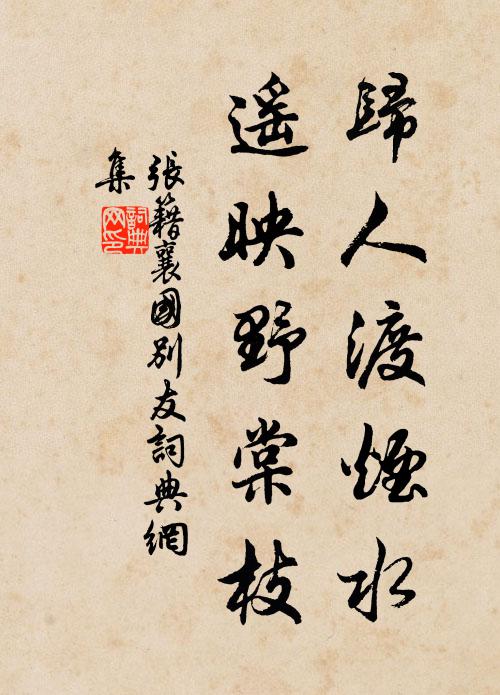 歸人渡煙水
遥映野棠枝
張籍襄國別友詞典網
集
詞典
网印